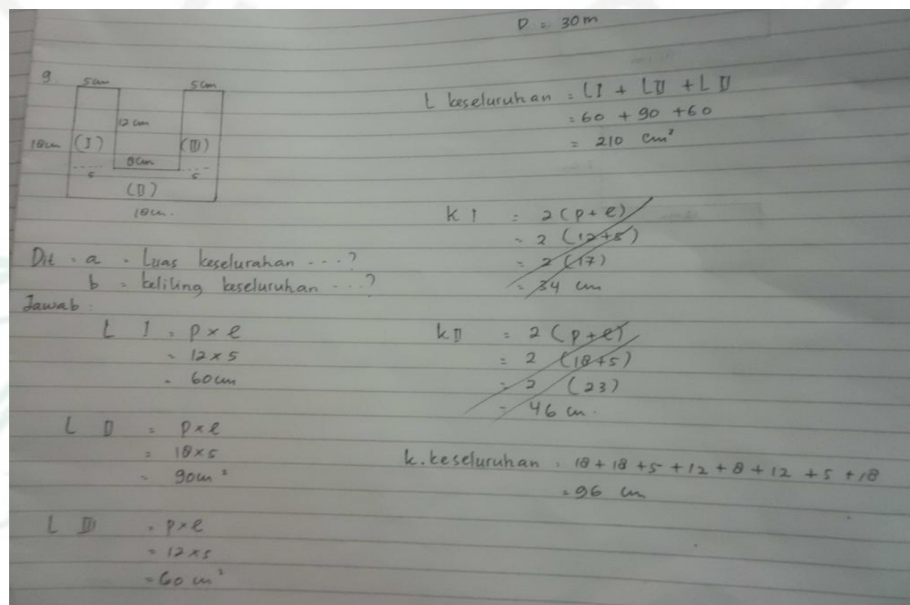 D = 30 m
9.
5 cm
5 cm
12 cm
18 cm
(I)
(III)
8 cm
5
5
(II)
18 cm.
Dit . a . Luas keselurahan ...?
b . keliling keseluruhan ...?
Jawab :
L I = p x l
= 12 x 5
= 60 cm
L II = p x l
= 18 x 5
= 90 cm²
L III = p x l
= 12 x 5
= 60 cm²
L keseluruhan = L I + L II + L II
= 60 + 90 + 60
= 210 cm²
k I = 2 (p + l)
= 2 (12 + 5)
= 2 (17)
= 34 cm
k II = 2 (p + l)
= 2 (18 + 5)
= 2 (23)
= 46 cm.
k. keseluruhan = 18 + 18 + 5 + 12 + 8 + 12 + 5 + 18
= 96 cm